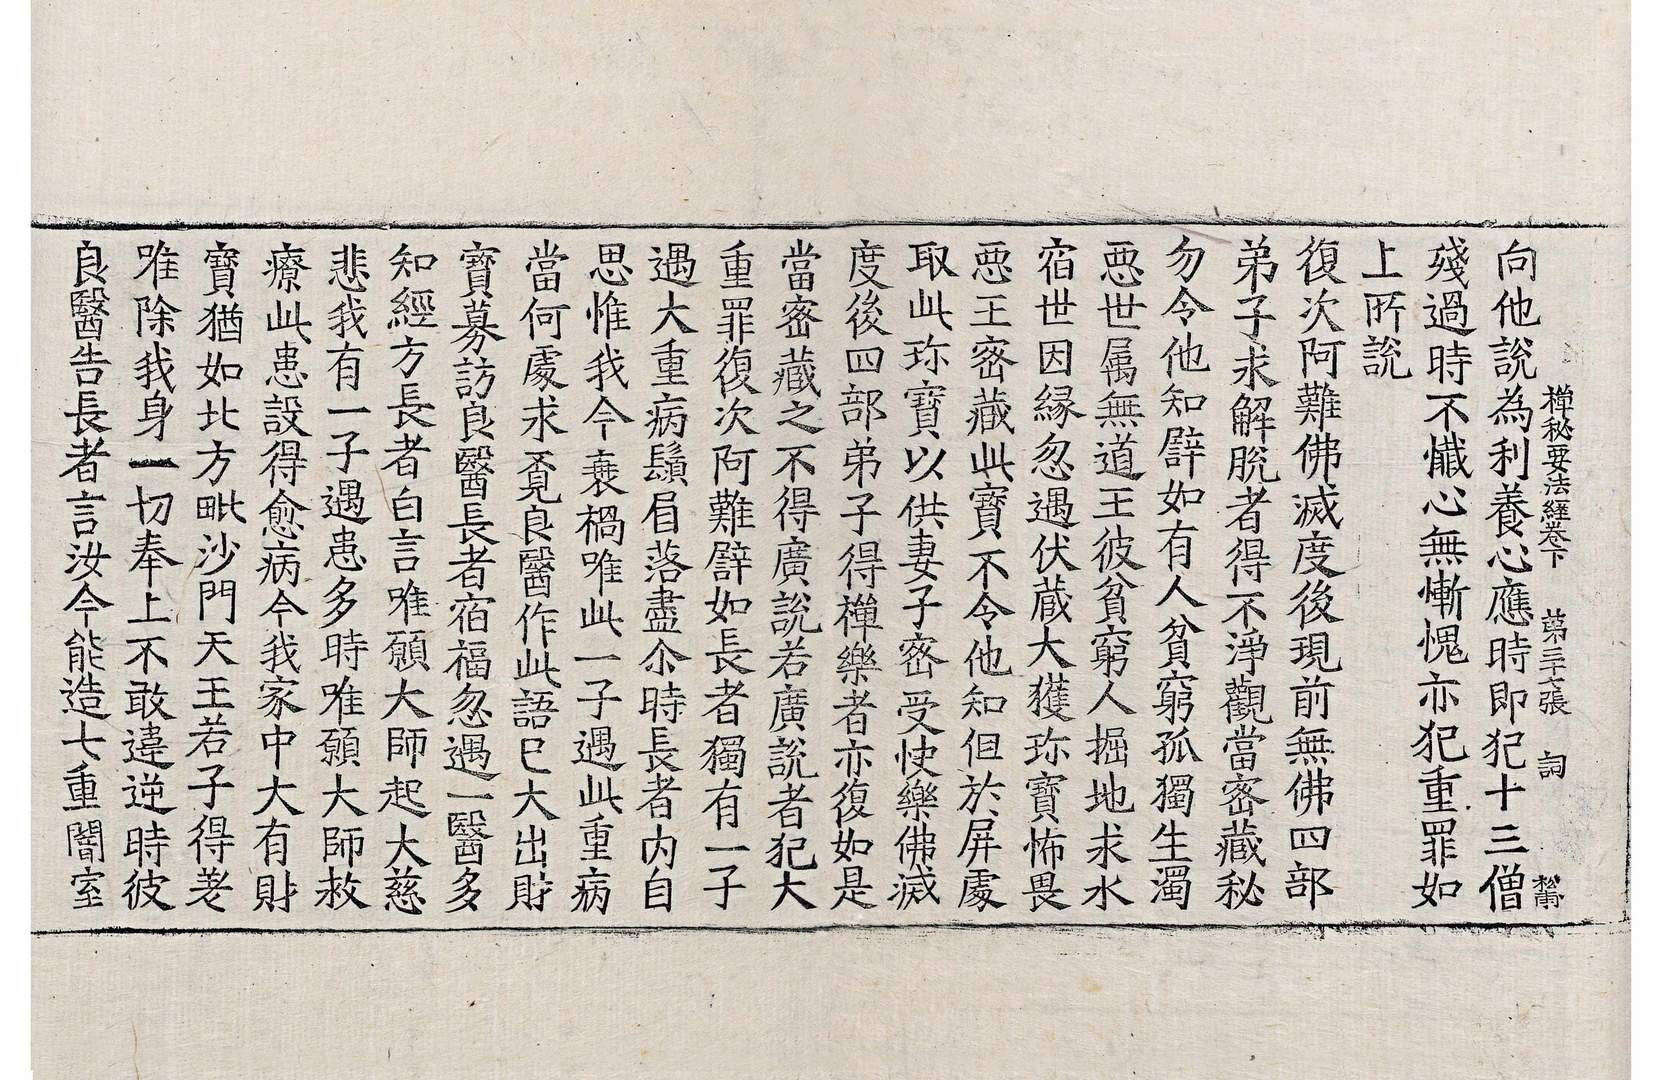 禪秘要法經卷下　第三十六張　詞
向他說為利養心應時即犯十三僧
殘過時不懺心無慚愧亦犯重罪如
上所說
復次阿難佛滅度後現前無佛四部
弟子求解脫者得不淨觀當密藏秘
勿令他知譬如有人貧窮孤獨生濁
惡世属無道王彼貧窮人掘地求水
宿世因緣忽遇伏蔵大獲珎寶怖畏
惡王密藏此寶不令他知但於屏處
取此珎寶以供妻子密受快樂佛滅
度後四部弟子得禪樂者亦復如是
當密藏之不得廣說若廣說者犯大
重罪復次阿難譬如長者獨有一子
遇大重病鬚眉落盡尒時長者內自
思惟我今衰禍唯此一子遇此重病
當何處求覔良醫作此語已大出財
寶募訪良醫長者宿福忽遇一醫多
知經方長者白言唯願大師起大慈
悲我有一子遇患多時唯願大師救
療此患設得愈病今我家中大有財
寶猶如北方毗沙門天王若子得差
唯除我身一切奉上不敢違逆時彼
良醫告長者言汝今能造七重闇室